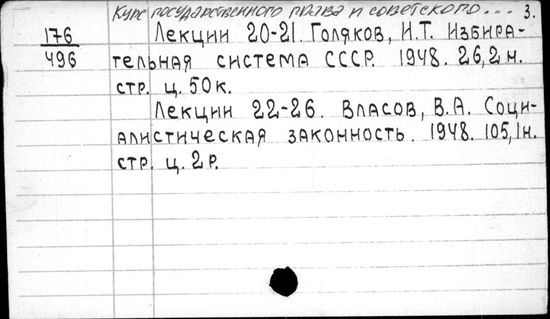 Курс государственного права и советского... 3.
176 Лекции 20-21. Голяков, И.Т. Избира-
496 тельная система СССР. 1948. 26,2 н.
стр. ц. 50 к.
Лекции 22-26. Власов, В.А. Соци-
алистическая законность. 1948. 105,1 н.
стр. ц. 2 р.